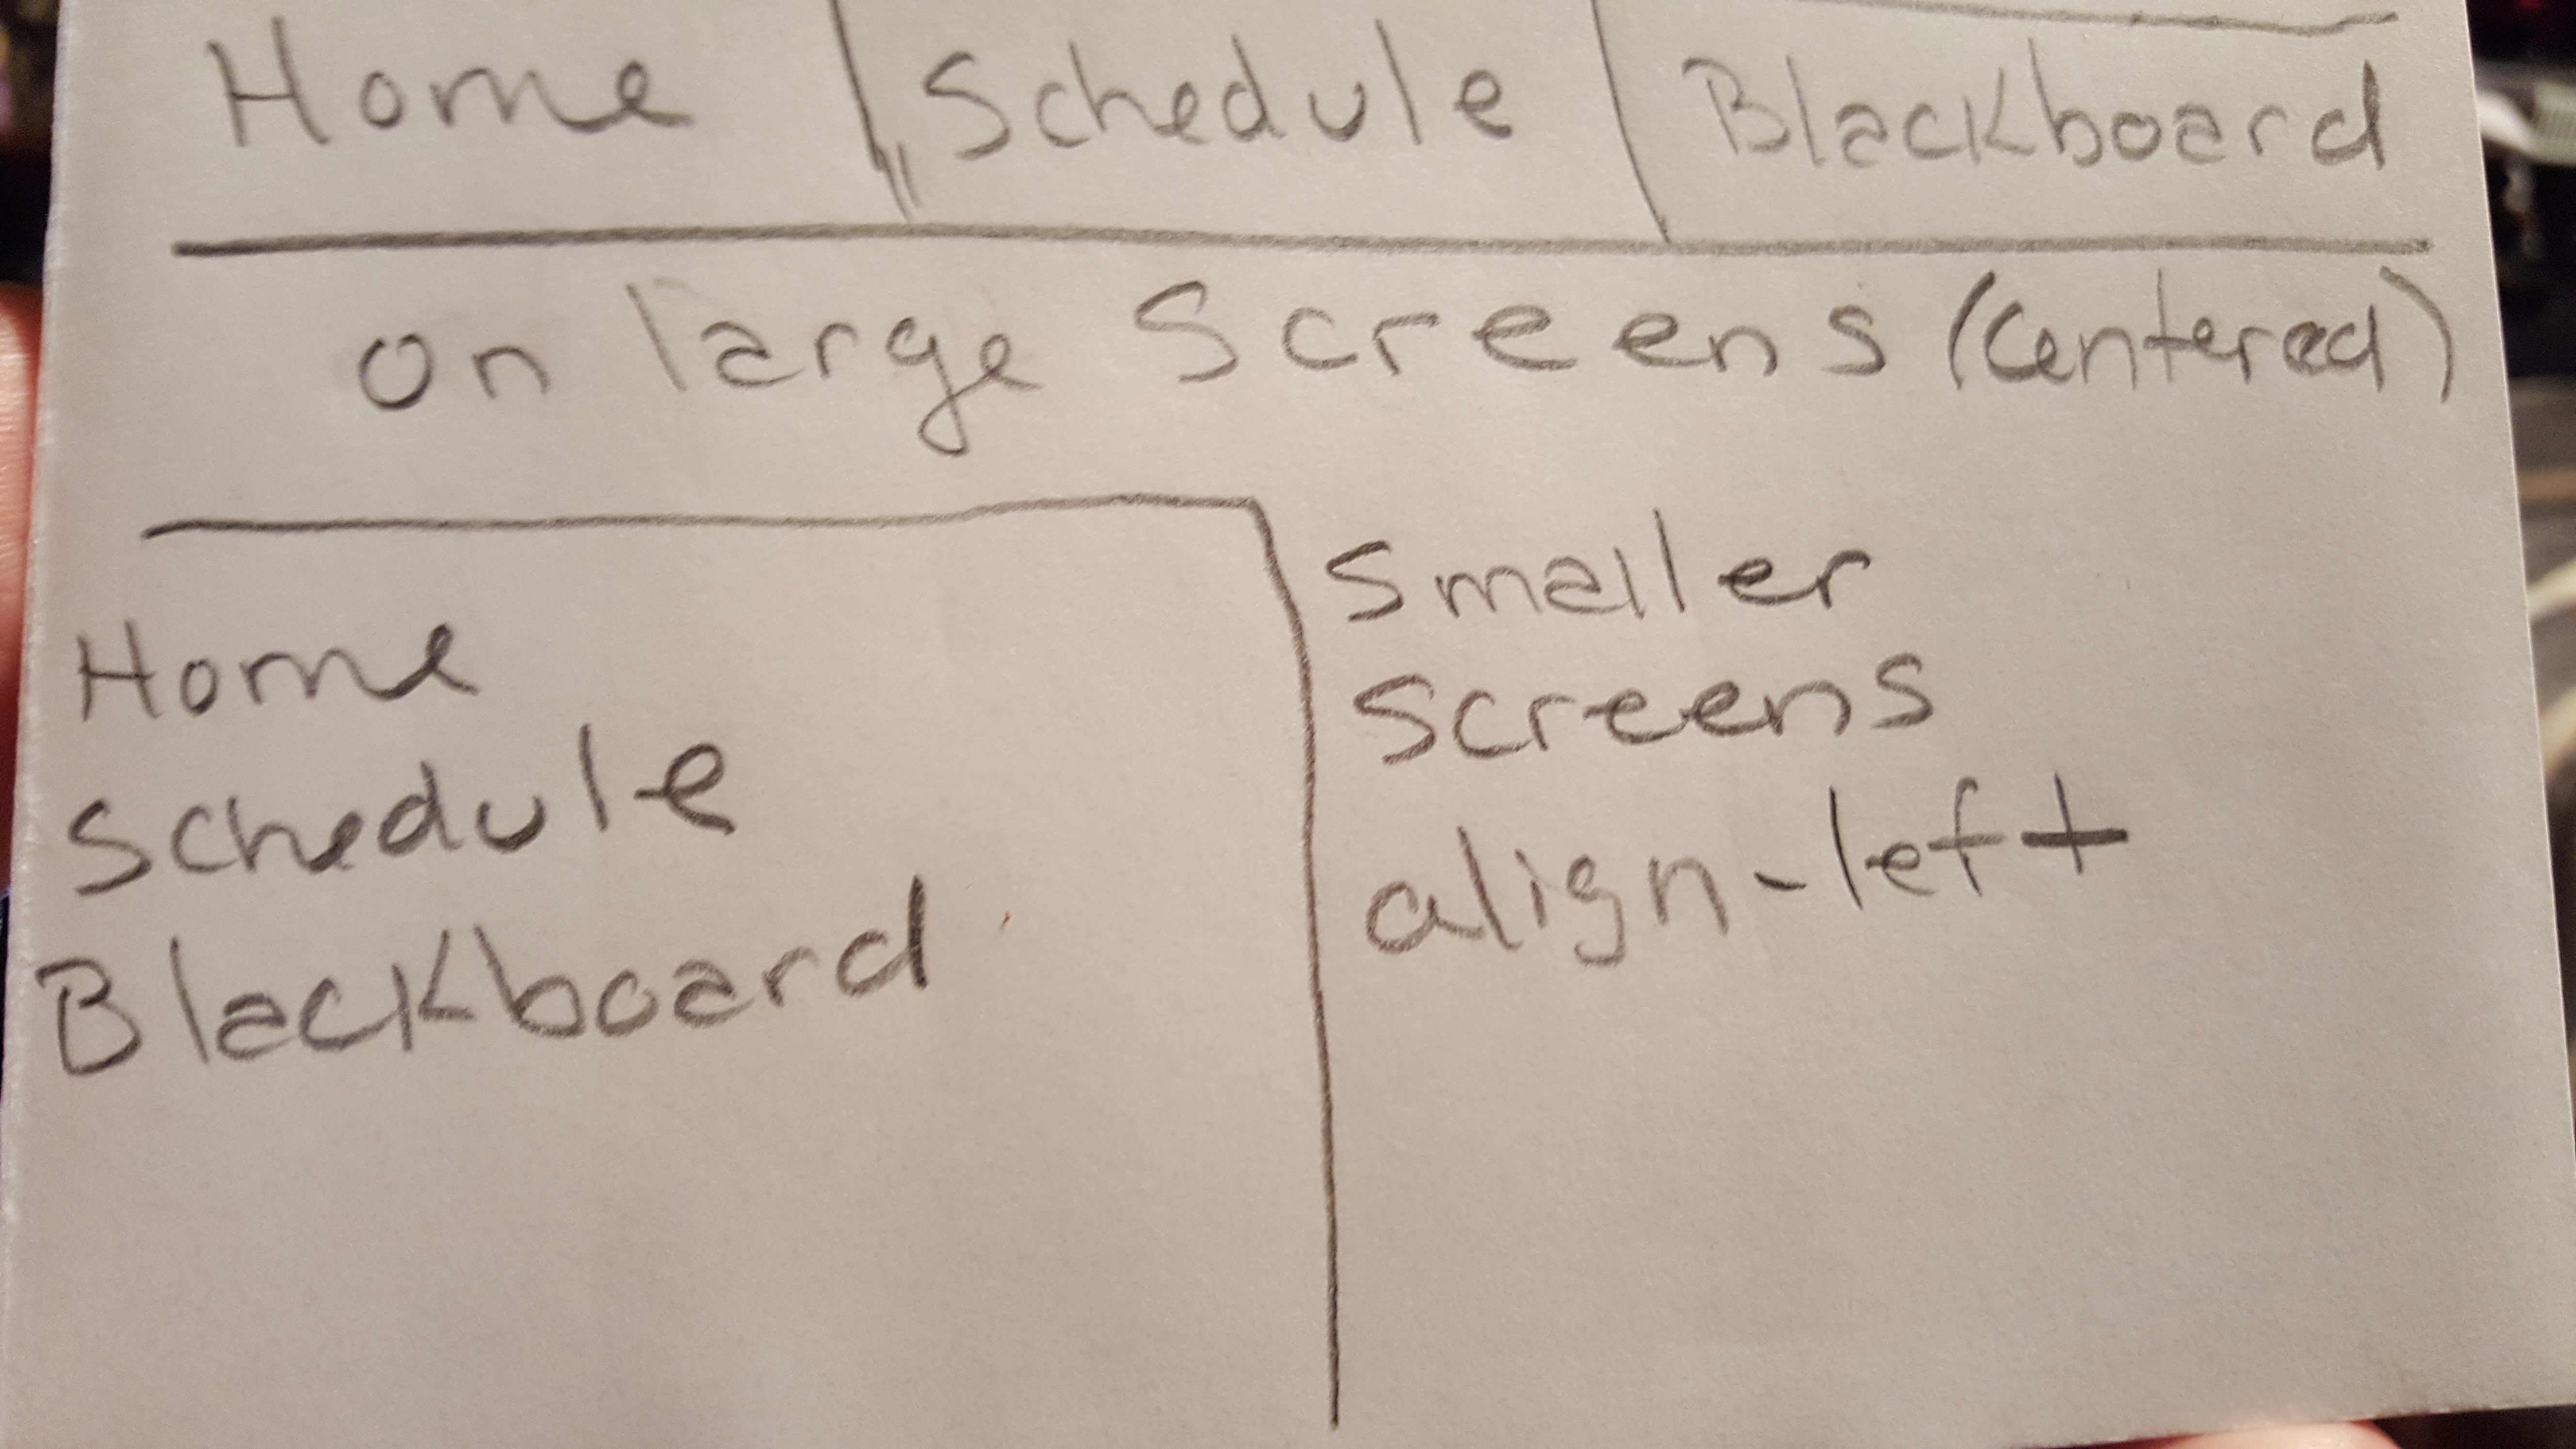 Home Schedule Blackboard
on large screens (Centered)
Home
Schedule
Blackboard
Smaller
screens
align-left